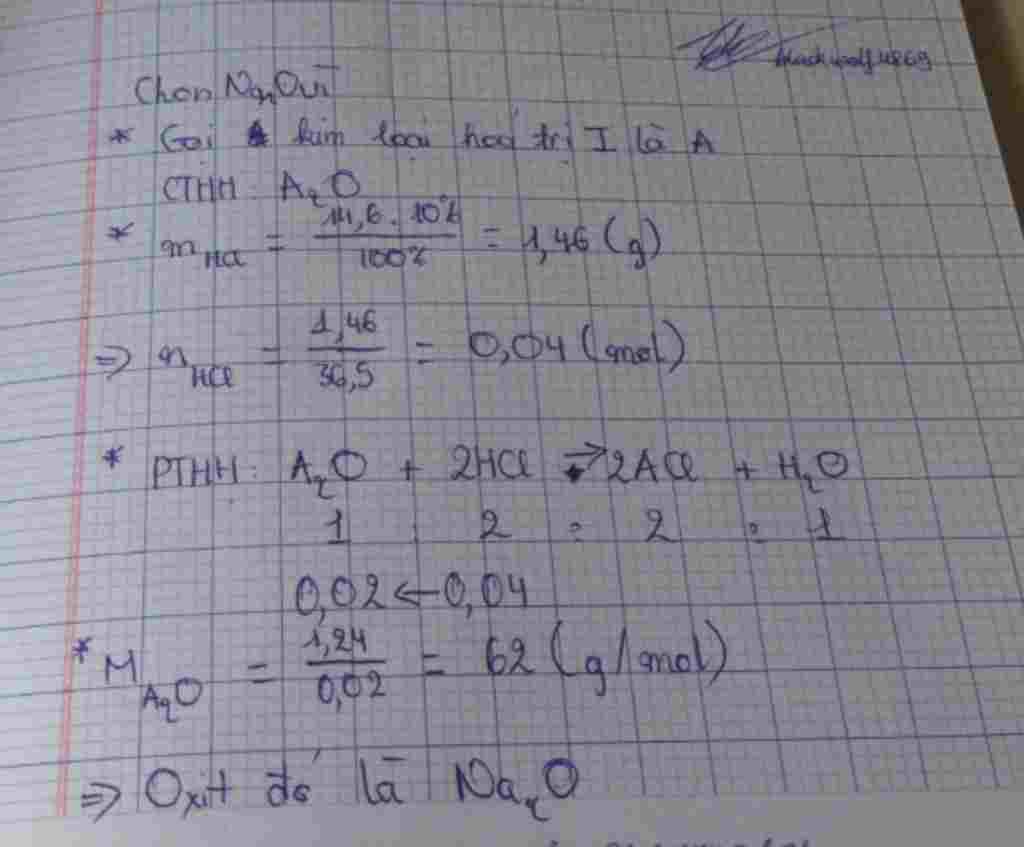 blackwolf4869
Chọn Na₂O vì
* Gọi kim loại hoá trị I là A
CTHH: A₂O
* mHCl = 14,6 . 10% / 100% = 1,46 (g)
=> nHCl = 1,46 / 36,5 = 0,04 (mol)
* PTHH: A₂O + 2HCl → 2ACl + H₂O
1 : 2 : 2 : 1
0,02 ← 0,04
* MA₂O = 1,24 / 0,02 = 62 (g/mol)
=> Oxit đó là Na₂O